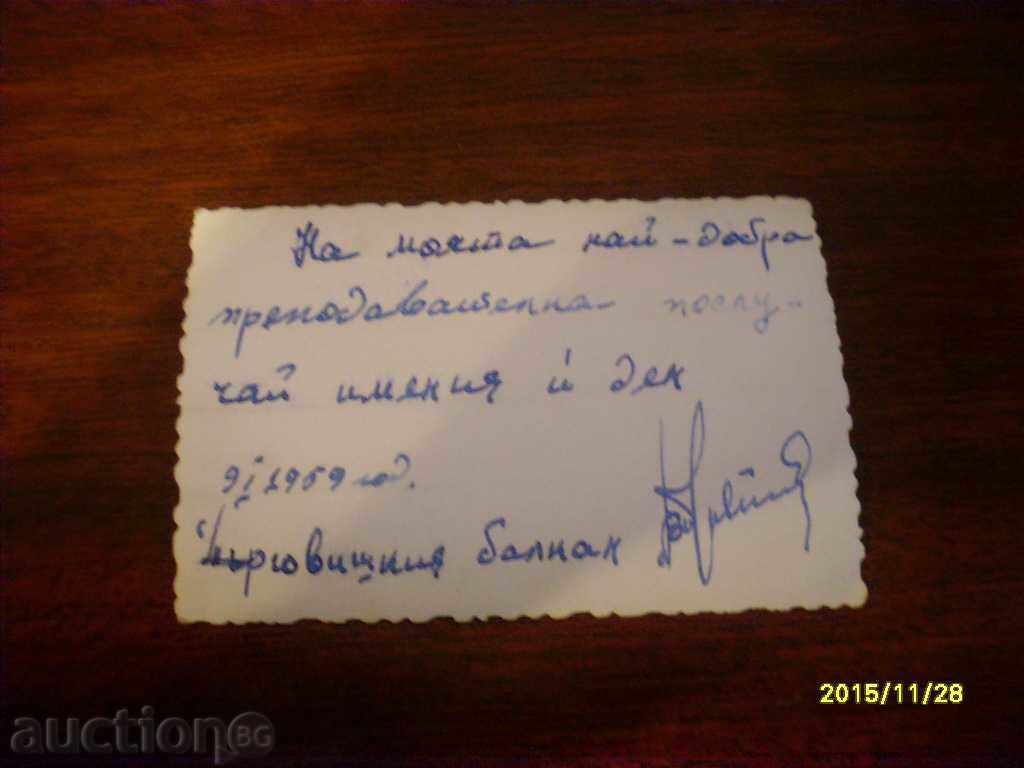 На моята най-добра
преподавателка послу-
чай имения ѝ ден
9 I 1959 год.
Търговищкия балкан
2015/11/28
auction BG